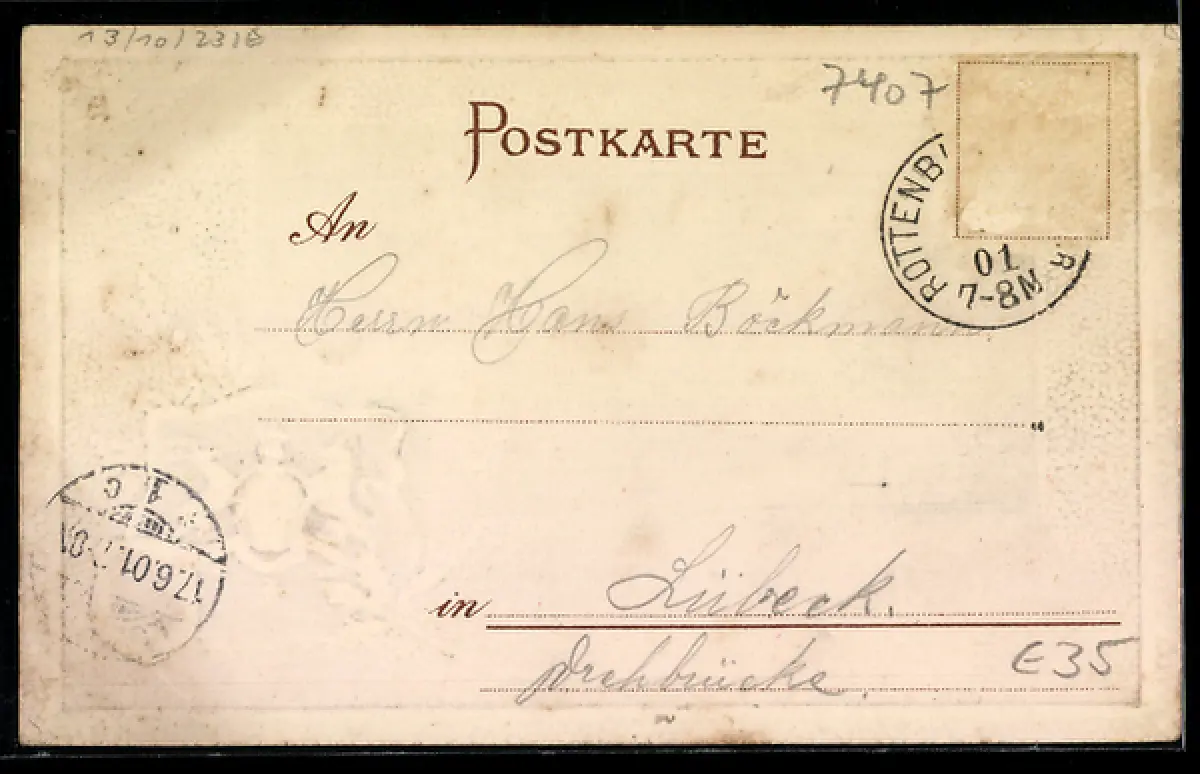 13/10/231E
7407
POSTKARTE
ROTTENB
01
7-8N
R
An
Herrn Hans Böckmann
1 C
17.6.01.
in Lübeck.
Drehbrücke.
E35